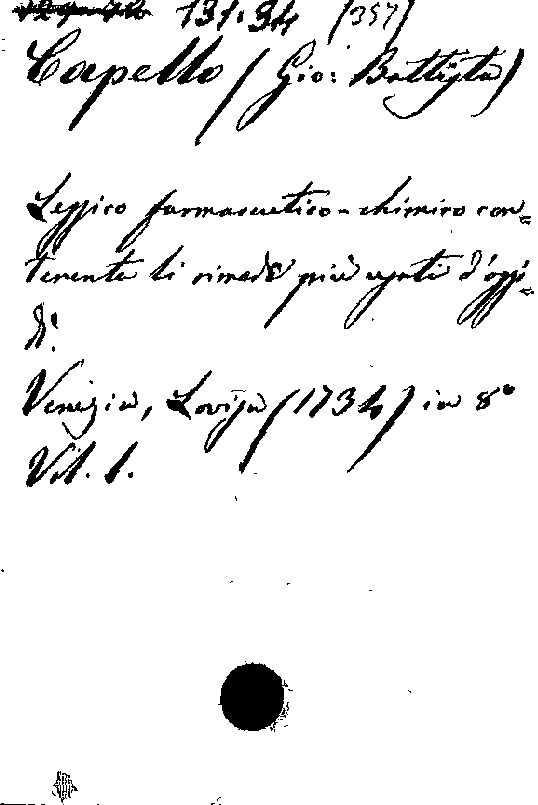 131.34 (357)
Capello (Gio: Battista)
Lessico farmaceutico-chimico con=
tenente li rimedi più usati d'oggi=
dì.
Venezia, Lovisa (1734) in 8°
Vol. 1.